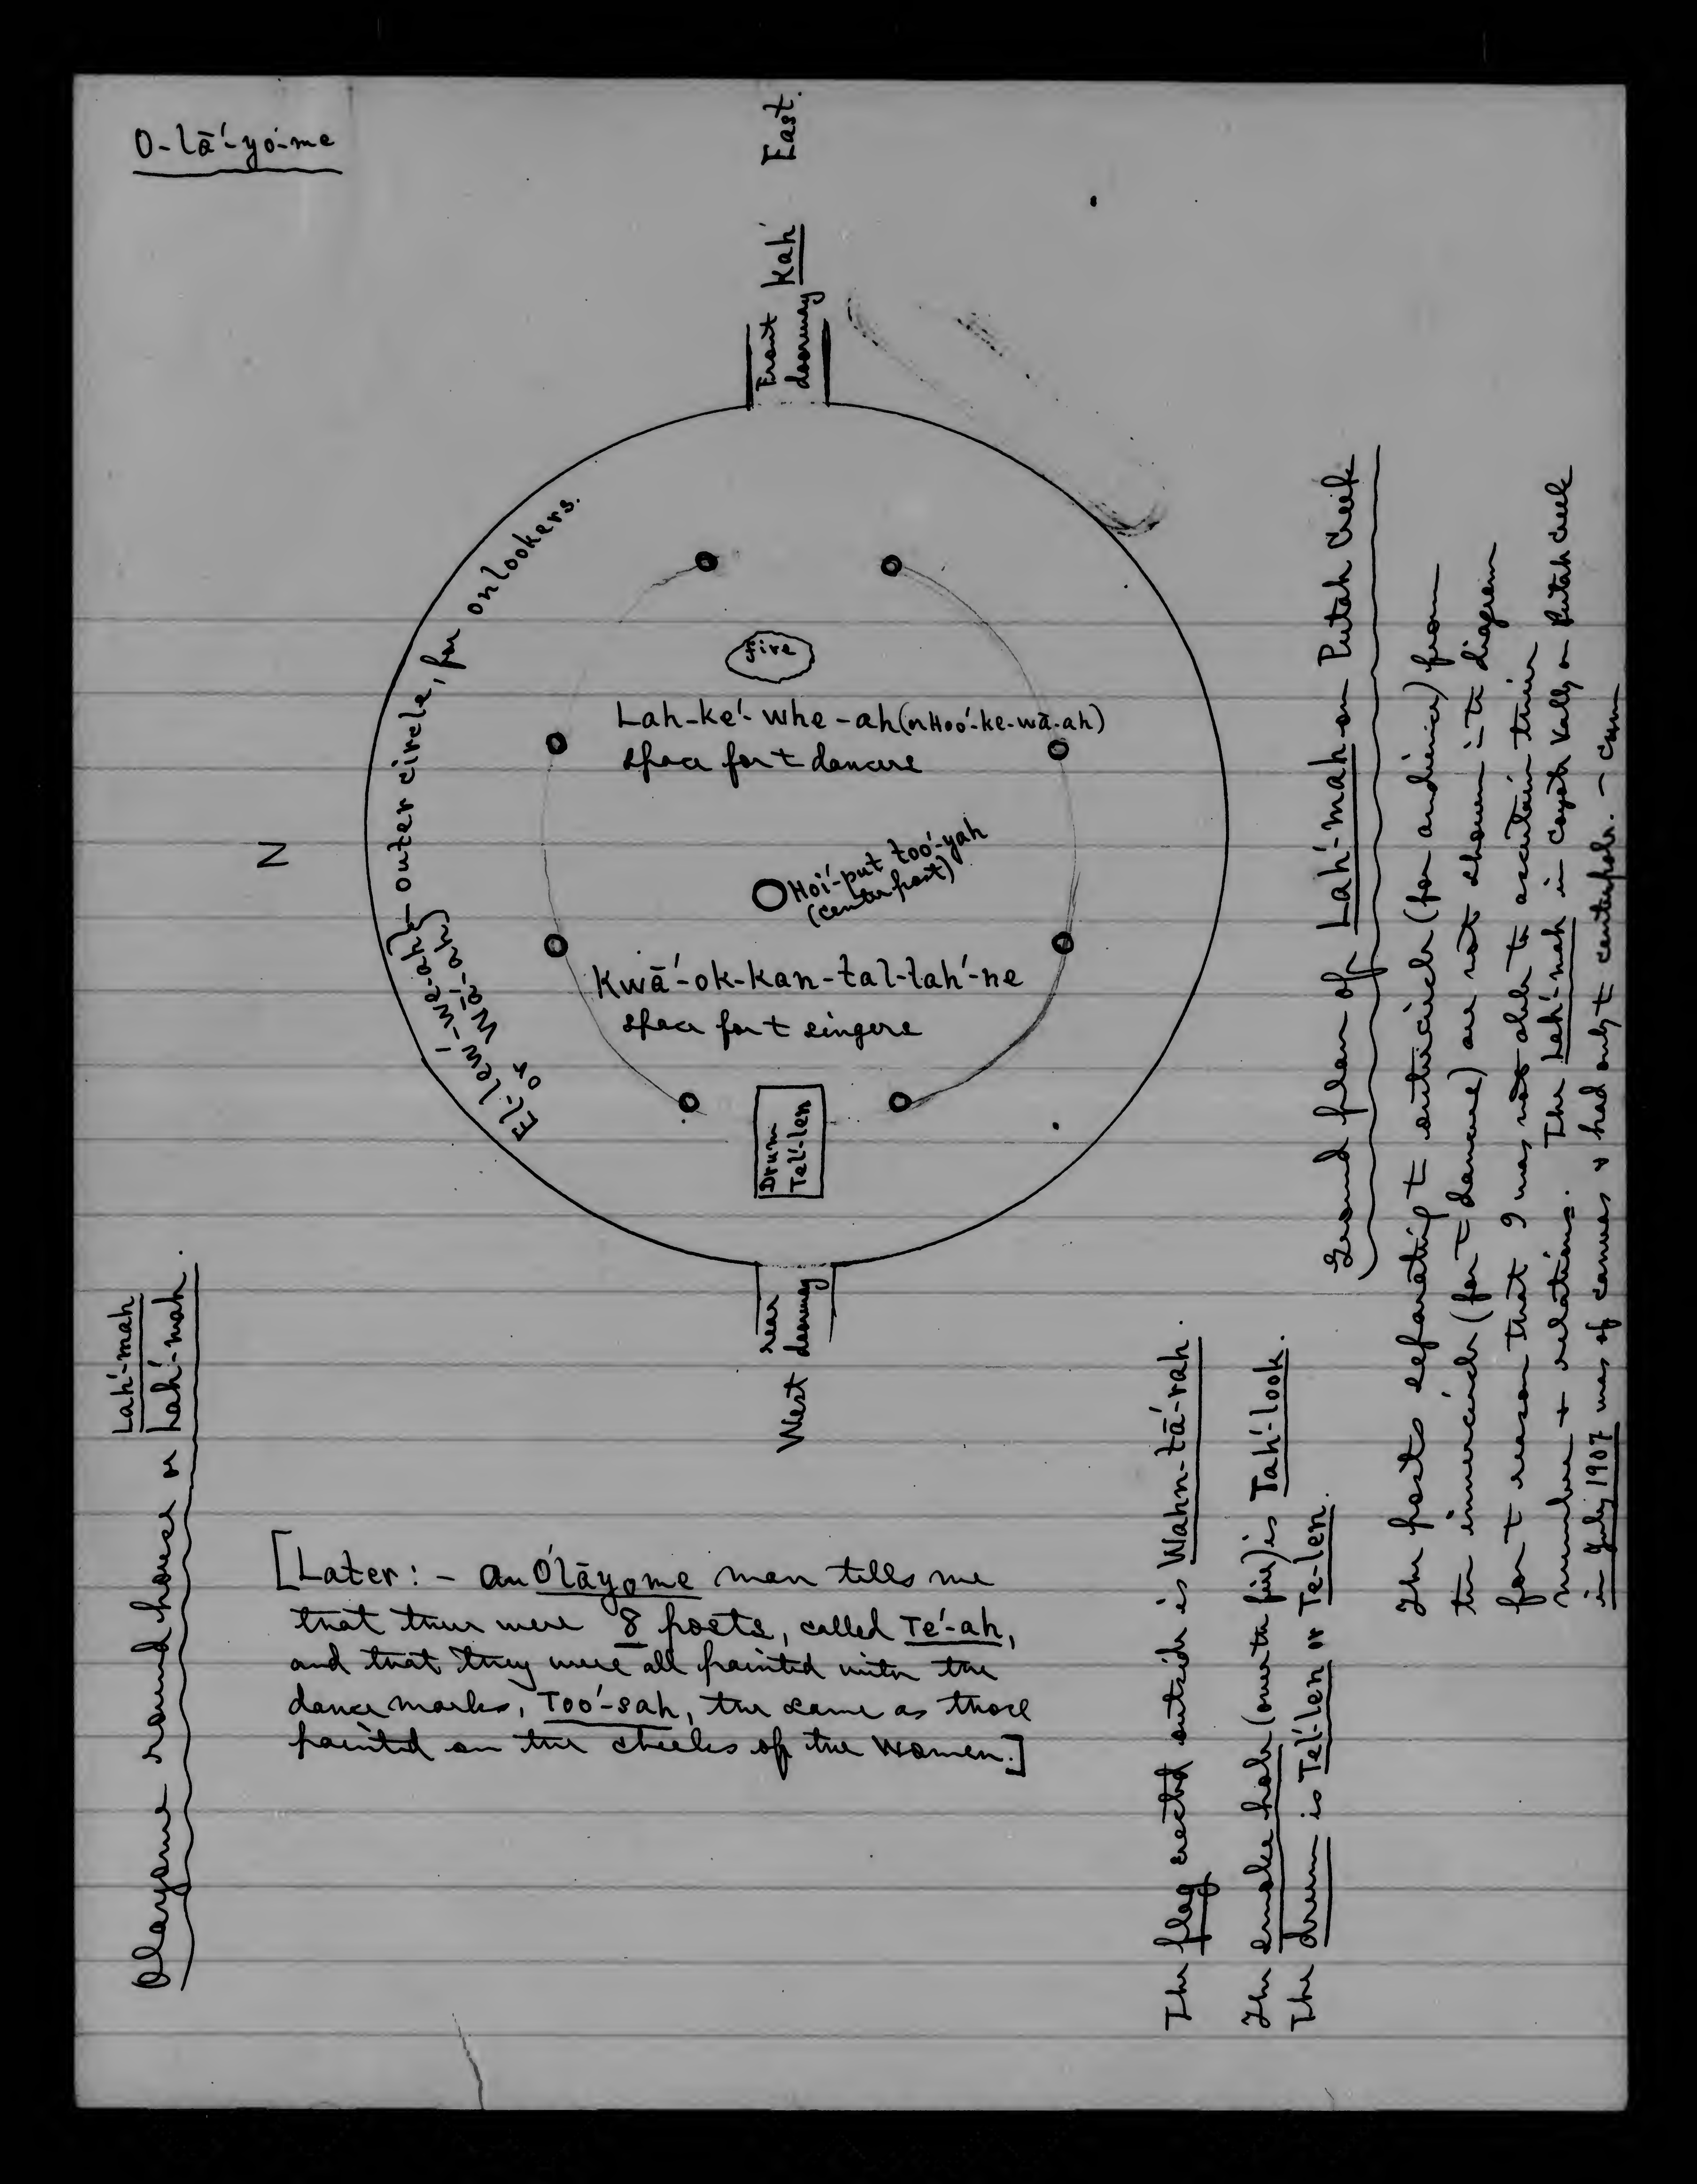 O-lā'-yo-me
East.
Front Kah'
doorway
El-lew'-we-ah } outer circle, for onlookers.
or Wā'-ah
N
fire
Lah-ke'-whe-ah (or Hoo'-ke-wā-ah)
space for t dancers
Hoi'-put too'-yah
(center post)
Kwā'-ok-kan-tal-lah'-ne
space for t singers
Drum
Tel'-len
rear
doorway
West
Lah'-mah
Olayome round house or Lah'-mah.
[Later: - An O'lāyome man tells me
that there were 8 posts, called Te'-ah,
and that they were all painted with the
dance marks, Too'-sah, the same as those
painted on the cheeks of the women.]
The flag erected outside is Wahn-tā'-rah.
The smoke hole (over the fire) is Tah'-look.
The drum is Tel'-len or Te-len.
Ground plan of Lah'-mah on Putah Creek
The posts separating t outer circle (for audience) from
the inner circle (for t dancers) are not shown in t diagram
for t reason that I was not able to ascertain their
number & relations. The Lah'-mah in Coyote Valley on Putah Creek
in July 1907 was of canvas & had only t centerpole. - CHM